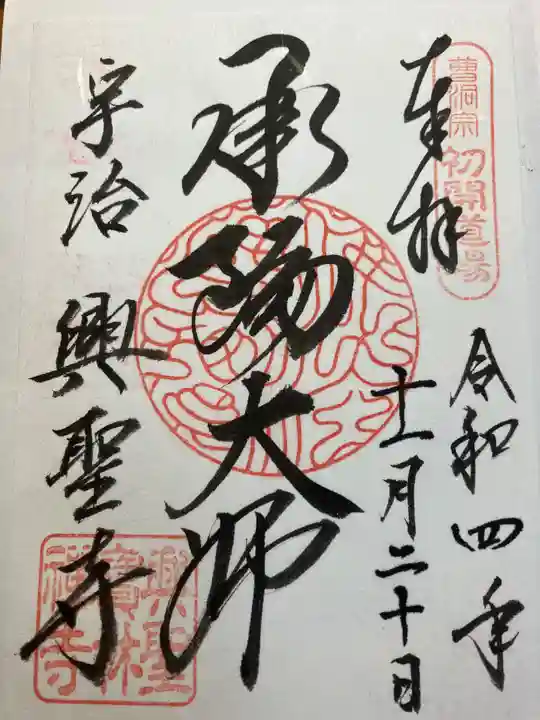 曹洞宗 初開道場
奉拝
令和四年
十一月二十日
承陽大師
宇治 興聖寺
興聖
寶林
禅寺